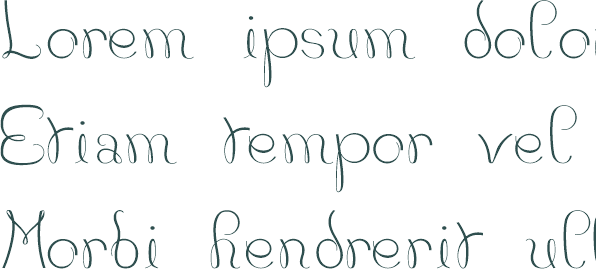 Lorem ipsum dolor
Etiam tempor vel
Morbi hendrerit ull